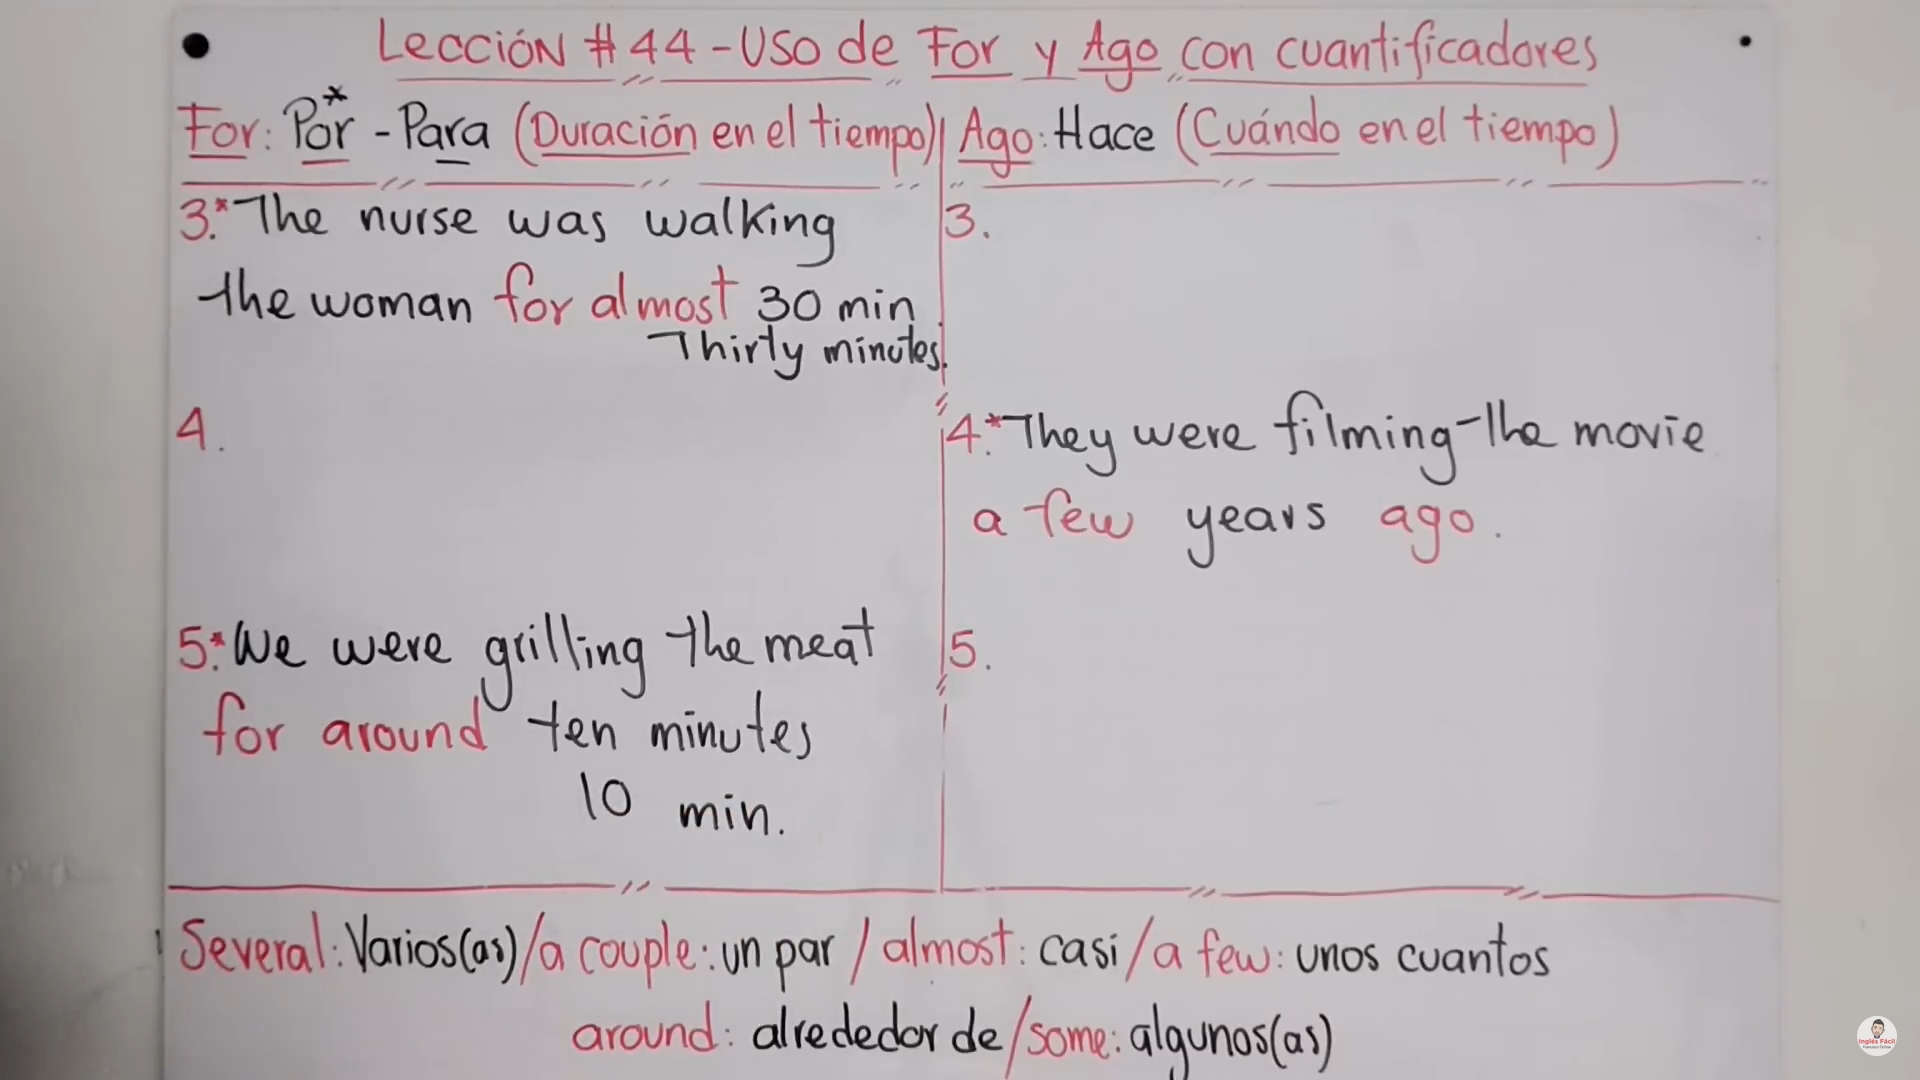 Lección #44 - Uso de For y Ago con cuantificadores
For: Por* - Para (Duración en el tiempo)
Ago: Hace (Cuándo en el tiempo)
3.* The nurse was walking
the woman for almost 30 min
Thirty minutes.
4.
5.* We were grilling the meat
for around ten minutes
10 min.
3.
4.* They were filming the movie
a few years ago.
5.
Several: Varios(as) / a couple: un par / almost: casi / a few: unos cuantos
around: alrededor de / some: algunos(as)
Inglés Fácil